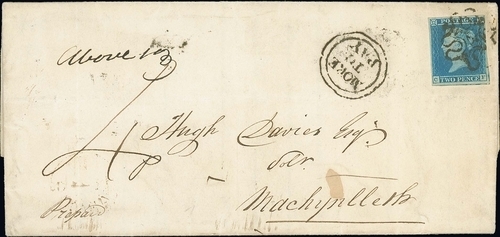 Above 1oz
MORE
TO
PAY
POSTAGE
TWO PENCE
Hugh Davies Esqr
Solr
Machynlleth
Prepaid